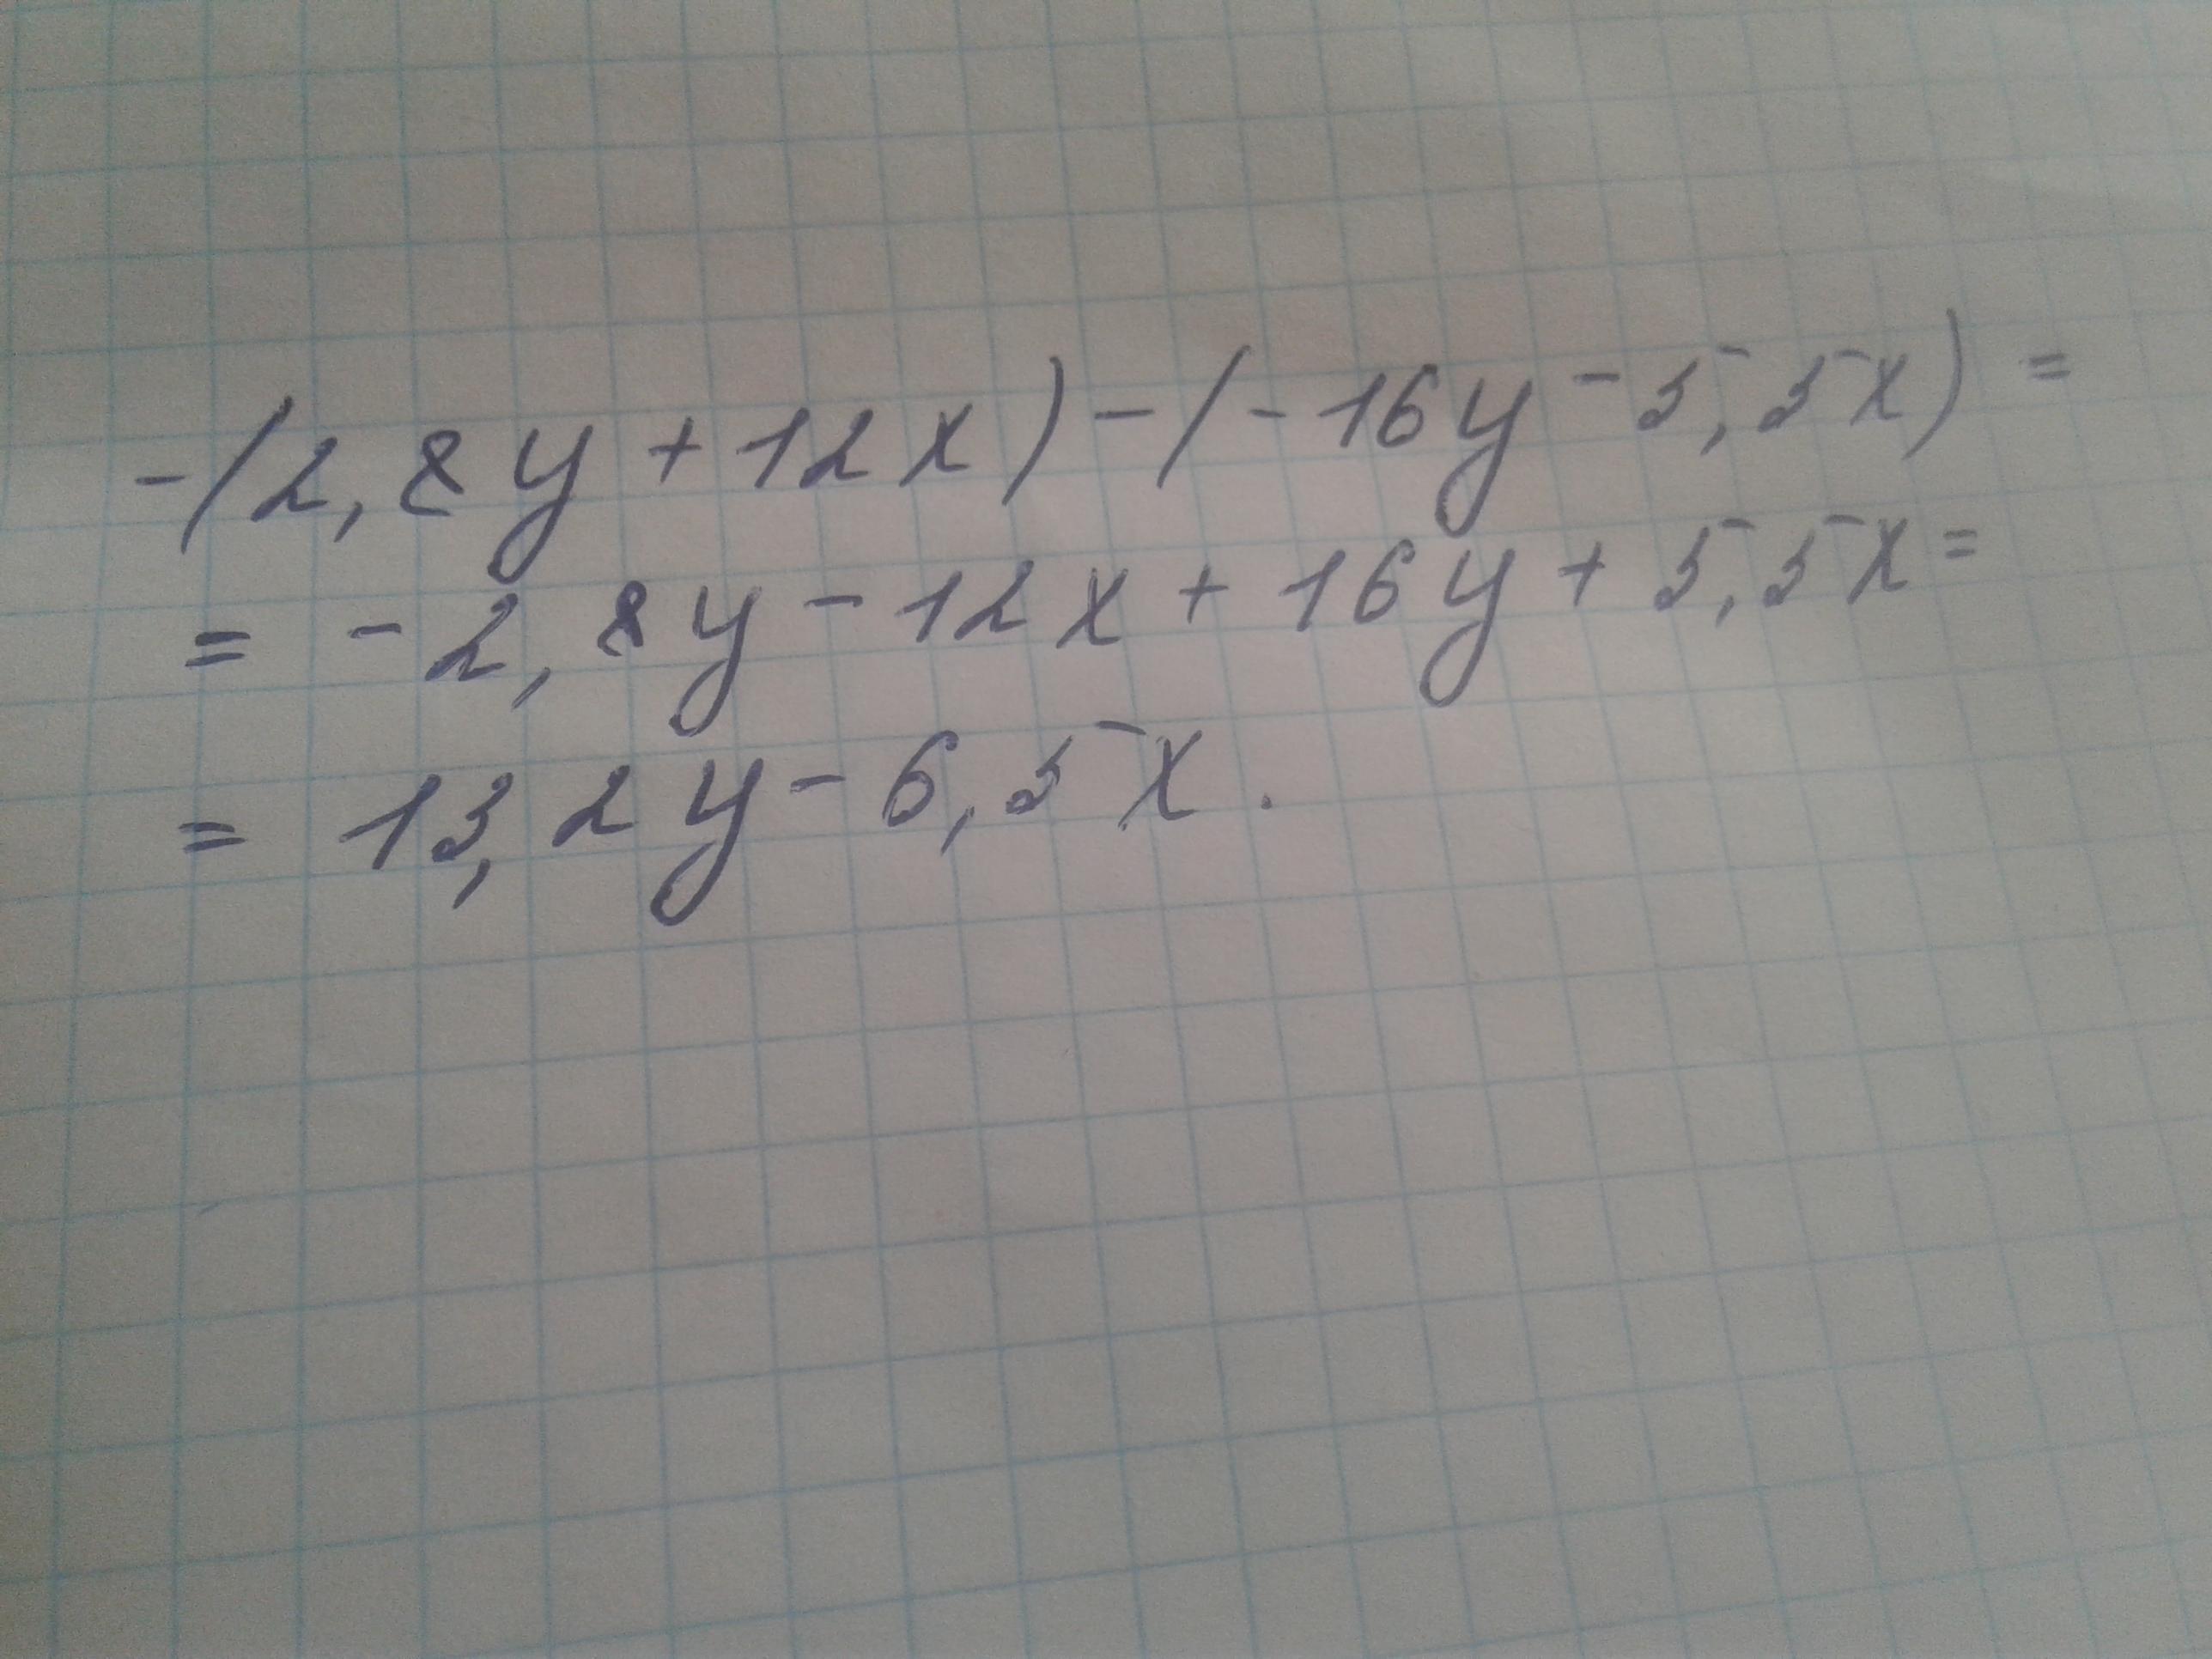 -(2,8y+12x)-(-16y-5,5x)=
=-2,8y-12x+16y+5,5x=
=13,2y-6,5x.